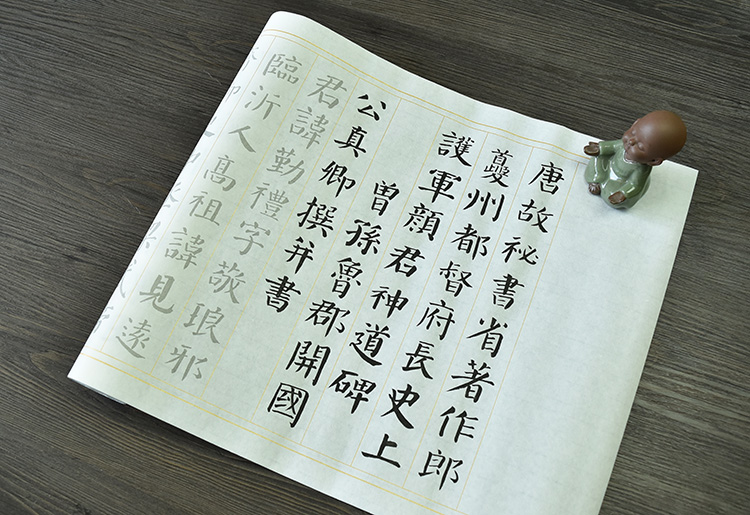 唐故祕書省著作郎
夔州都督府長史上
護軍顏君神道碑
曾孫魯郡開國
公真卿撰并書
君諱勤禮字敬琅邪
臨沂人高祖諱見遠